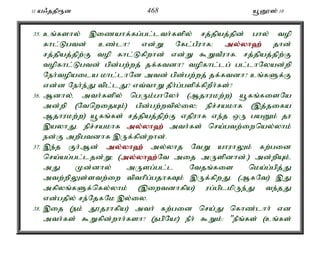 11 யஃததிரூன 468 யூனுஸ் 10
35. உங்களால் இணையாக்கப்பட்டவர்களில் சத்தியத்தின் பால் வழி
காட்டுபவன் உண்டா? என்று கேட்பீராக; அல்லாஹ் தான்
சத்தியத்திற்கு வழி காட்டுகிறான் என்று கூறுவீராக. சத்தியத்திற்கு
வழிகாட்டுபவன் பின்பற்றத் தக்கவனா? வழிகாட்டப் பட்டாலேயன்றி
நேர்வழியடைய மாட்டானே அவன் பின்பற்றத் தக்கவனா? உங்களுக்கு
என்ன நேர்ந்து விட்டது? எவ்வாறு தீர்ப்பளிக்கிறீர்கள்?
36. ஆனால், அவர்களில் பெரும்பாலோர் (ஆதாரமற்ற) யூகங்களையே
அன்றி (வேறெதையும்) பின்பற்றவில்லை; நிச்சயமாக (இத்தகைய
ஆதாரமற்ற) யூகங்கள் சத்தியத்திற்கு எதிராக எந்த ஒரு பயனும் தர
இயலாது. நிச்சயமாக அல்லாஹ் அவர்கள் செய்பவற்றையெல்லாம்
நன்கு அறிபவனாக இருக்கின்றான்.
37. இந்த குர்ஆன் அல்லாஹ் அல்லாத வேறு யாராலும் கற்பனை
செய்யப்பட்டதன்று; (அல்லாஹ்வே அதை அருளினான்.) அன்றியும்,
அது முன்னால் அருளப்பட்ட வேதங்களை மெய்ப்பித்து
அவற்றிலுள்ளவற்றை விவரிப்பதாகவும் இருக்கிறது (ஆகவே) இது
அகிலங்களுக்கெல்லாம் (இறைவனாகிய) ரப்பிடமிருந்து வந்தது
என்பதில் சந்தேகமே இல்லை.
38. இதை (நம் தூதராகிய) அவர் கற்பனை செய்து கொண்டார் என
அவர்கள் கூறுகின்றார்களா? (நபியே!) நீர் கூறும்: "நீங்கள் (உங்கள்